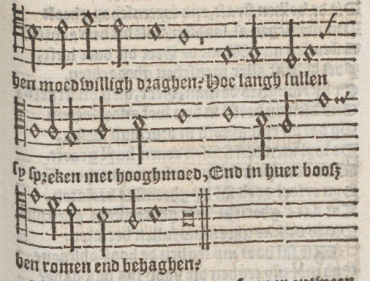 ben moedwilligh draghen? Hoe langh sullen
sy spreken met hooghmoed, End in huer boosz
ben romen end behaghen?